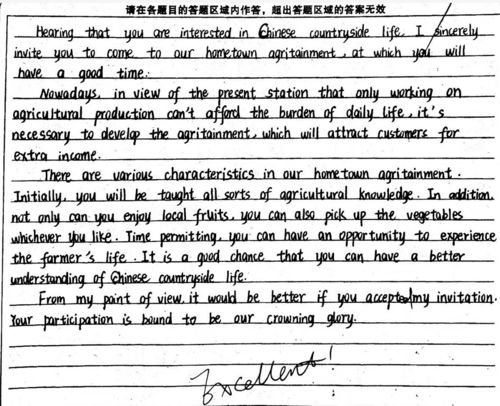 请在各题目的答题区域内作答，超出答题区域的答案无效
Hearing that you are interested in Chinese countryside life, I sincerely
invite you to come to our hometown agritainment, at which you will
have a good time.
Nowadays, in view of the present station that only working on
agricultural production can't afford the burden of daily life, it's
necessary to develop the agritainment, which will attract customers for
extra income.
There are various characteristics in our hometown agritainment.
Initially, you will be taught all sorts of agricultural knowledge. In addition,
not only can you enjoy local fruits, you can also pick up the vegetables
whichever you like. Time permitting, you can have an opportunity to experience
the farmer's life. It is a good chance that you can have a better
understanding of Chinese countryside life.
From my point of view, it would be better if you accepted my invitation.
Your participation is bound to be our crowning glory.
Excellent!